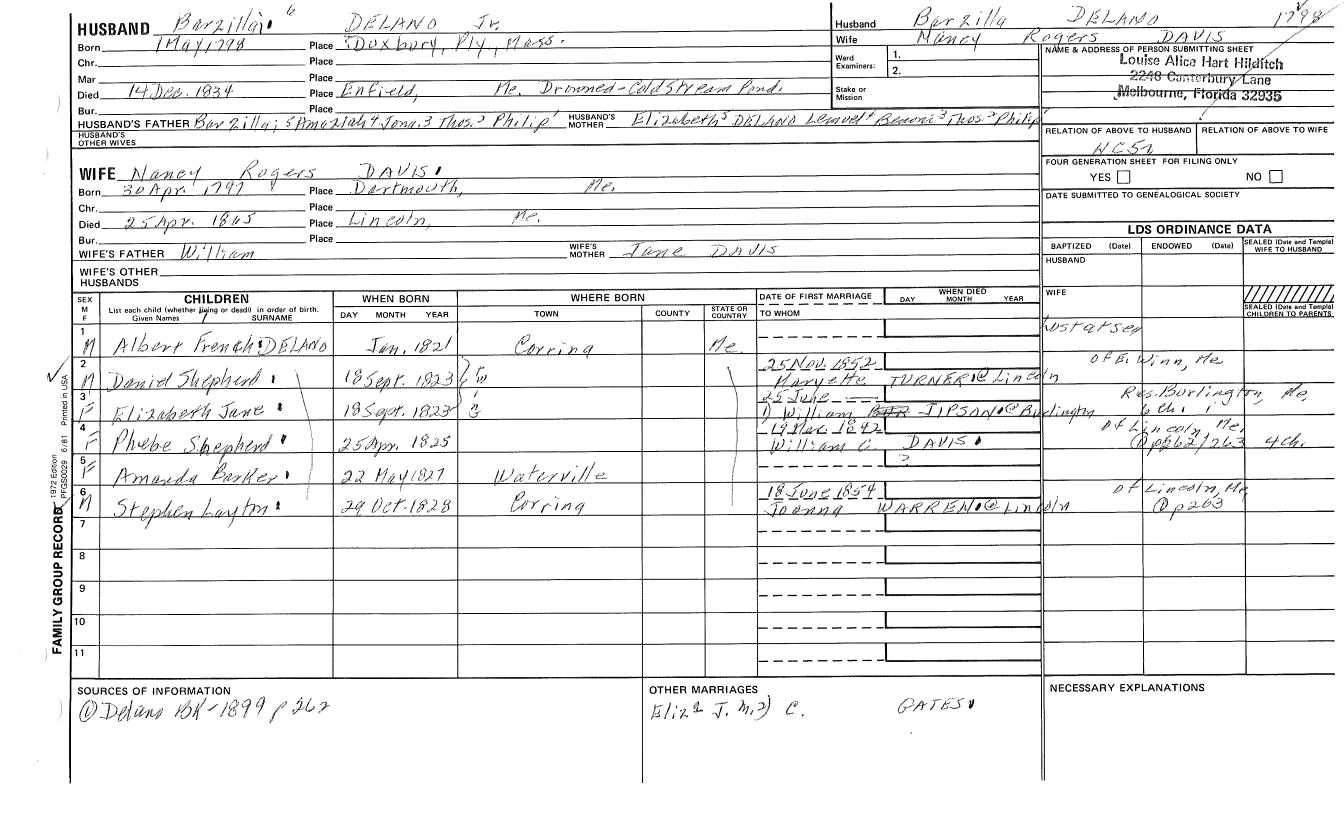 HUSBAND Barzillai 6 DELANO Jr.
Born 1 May 1798 Place Duxbury, Ply, Mass.
Chr. Place
Mar Place
Died 14 Dec. 1834 Place Enfield, Me. Drowned - Cold Stream Pond.
Bur. Place
HUSBAND'S FATHER Barzillai 5 Amaziah 4 Jona. 3 Thos. 2 Philip 1 HUSBAND'S MOTHER Elizabeth 5 DELANO Lemuel 4 Benoni 3 Thos. 2 Philip 1
HUSBAND'S OTHER WIVES
Husband Barzilla DELANO 1798
Wife Nancy Rogers DAVIS
Ward Examiners: 1.
2.
Stake or Mission
NAME & ADDRESS OF PERSON SUBMITTING SHEET
Louise Alice Hart Hilditch
2248 Canterbury Lane
Melbourne, Florida 32935
RELATION OF ABOVE TO HUSBAND RELATION OF ABOVE TO WIFE
FOUR GENERATION SHEET FOR FILING ONLY
YES NO
DATE SUBMITTED TO GENEALOGICAL SOCIETY
WIFE Nancy Rogers DAVIS
Born 30 Apr. 1797 Place Dartmouth, Me.
Chr. Place
Died 25 Apr. 1865 Place Lincoln, Me.
Bur. Place
WIFE'S FATHER William WIFE'S MOTHER Jane DAVIS
WIFE'S OTHER HUSBANDS
LDS ORDINANCE DATA
BAPTIZED (Date) ENDOWED (Date) SEALED (Date and Temple) WIFE TO HUSBAND
HUSBAND
WIFE
SEALED (Date and Temple) CHILDREN TO PARENTS
SEX M F CHILDREN WHEN BORN WHERE BORN DATE OF FIRST MARRIAGE WHEN DIED
List each child (whether living or dead) in order of birth. Given Names SURNAME DAY MONTH YEAR TOWN COUNTY STATE OR COUNTRY TO WHOM DAY MONTH YEAR
1 M Albert French DELANO Jan. 1821 Corring Me.
2 25 Nov. 1852 of E. Winn, Me
M Daniel Shepherd 18 Sept. 1823 Maryette TURNER @ Lincoln
3 25 June Res. Burlington, Me,
F Elizabeth Jane 18 Sept. 1823 1) William JIPSON @ Burlington 6 ch.
4 1842 of Lincoln, Me.
F Phebe Shepherd 25 Apr. 1825 William C. DAVIS ① pp262/263 4 ch.
5 F Amanda Barker 22 May 1827 Waterville ?
6 18 June 1854 of Lincoln, Me
M Stephen Layton 29 Oct. 1828 Corring Joanna WARREN @ Lincoln ① p263
7
8
9
10
11
FAMILY GROUP RECORD 1972 Edition PFGS0029 6/81 Printed in USA
SOURCES OF INFORMATION
① Delano BK - 1899 p 262
OTHER MARRIAGES
Eliza J. m. 2) C. GATES
NECESSARY EXPLANATIONS